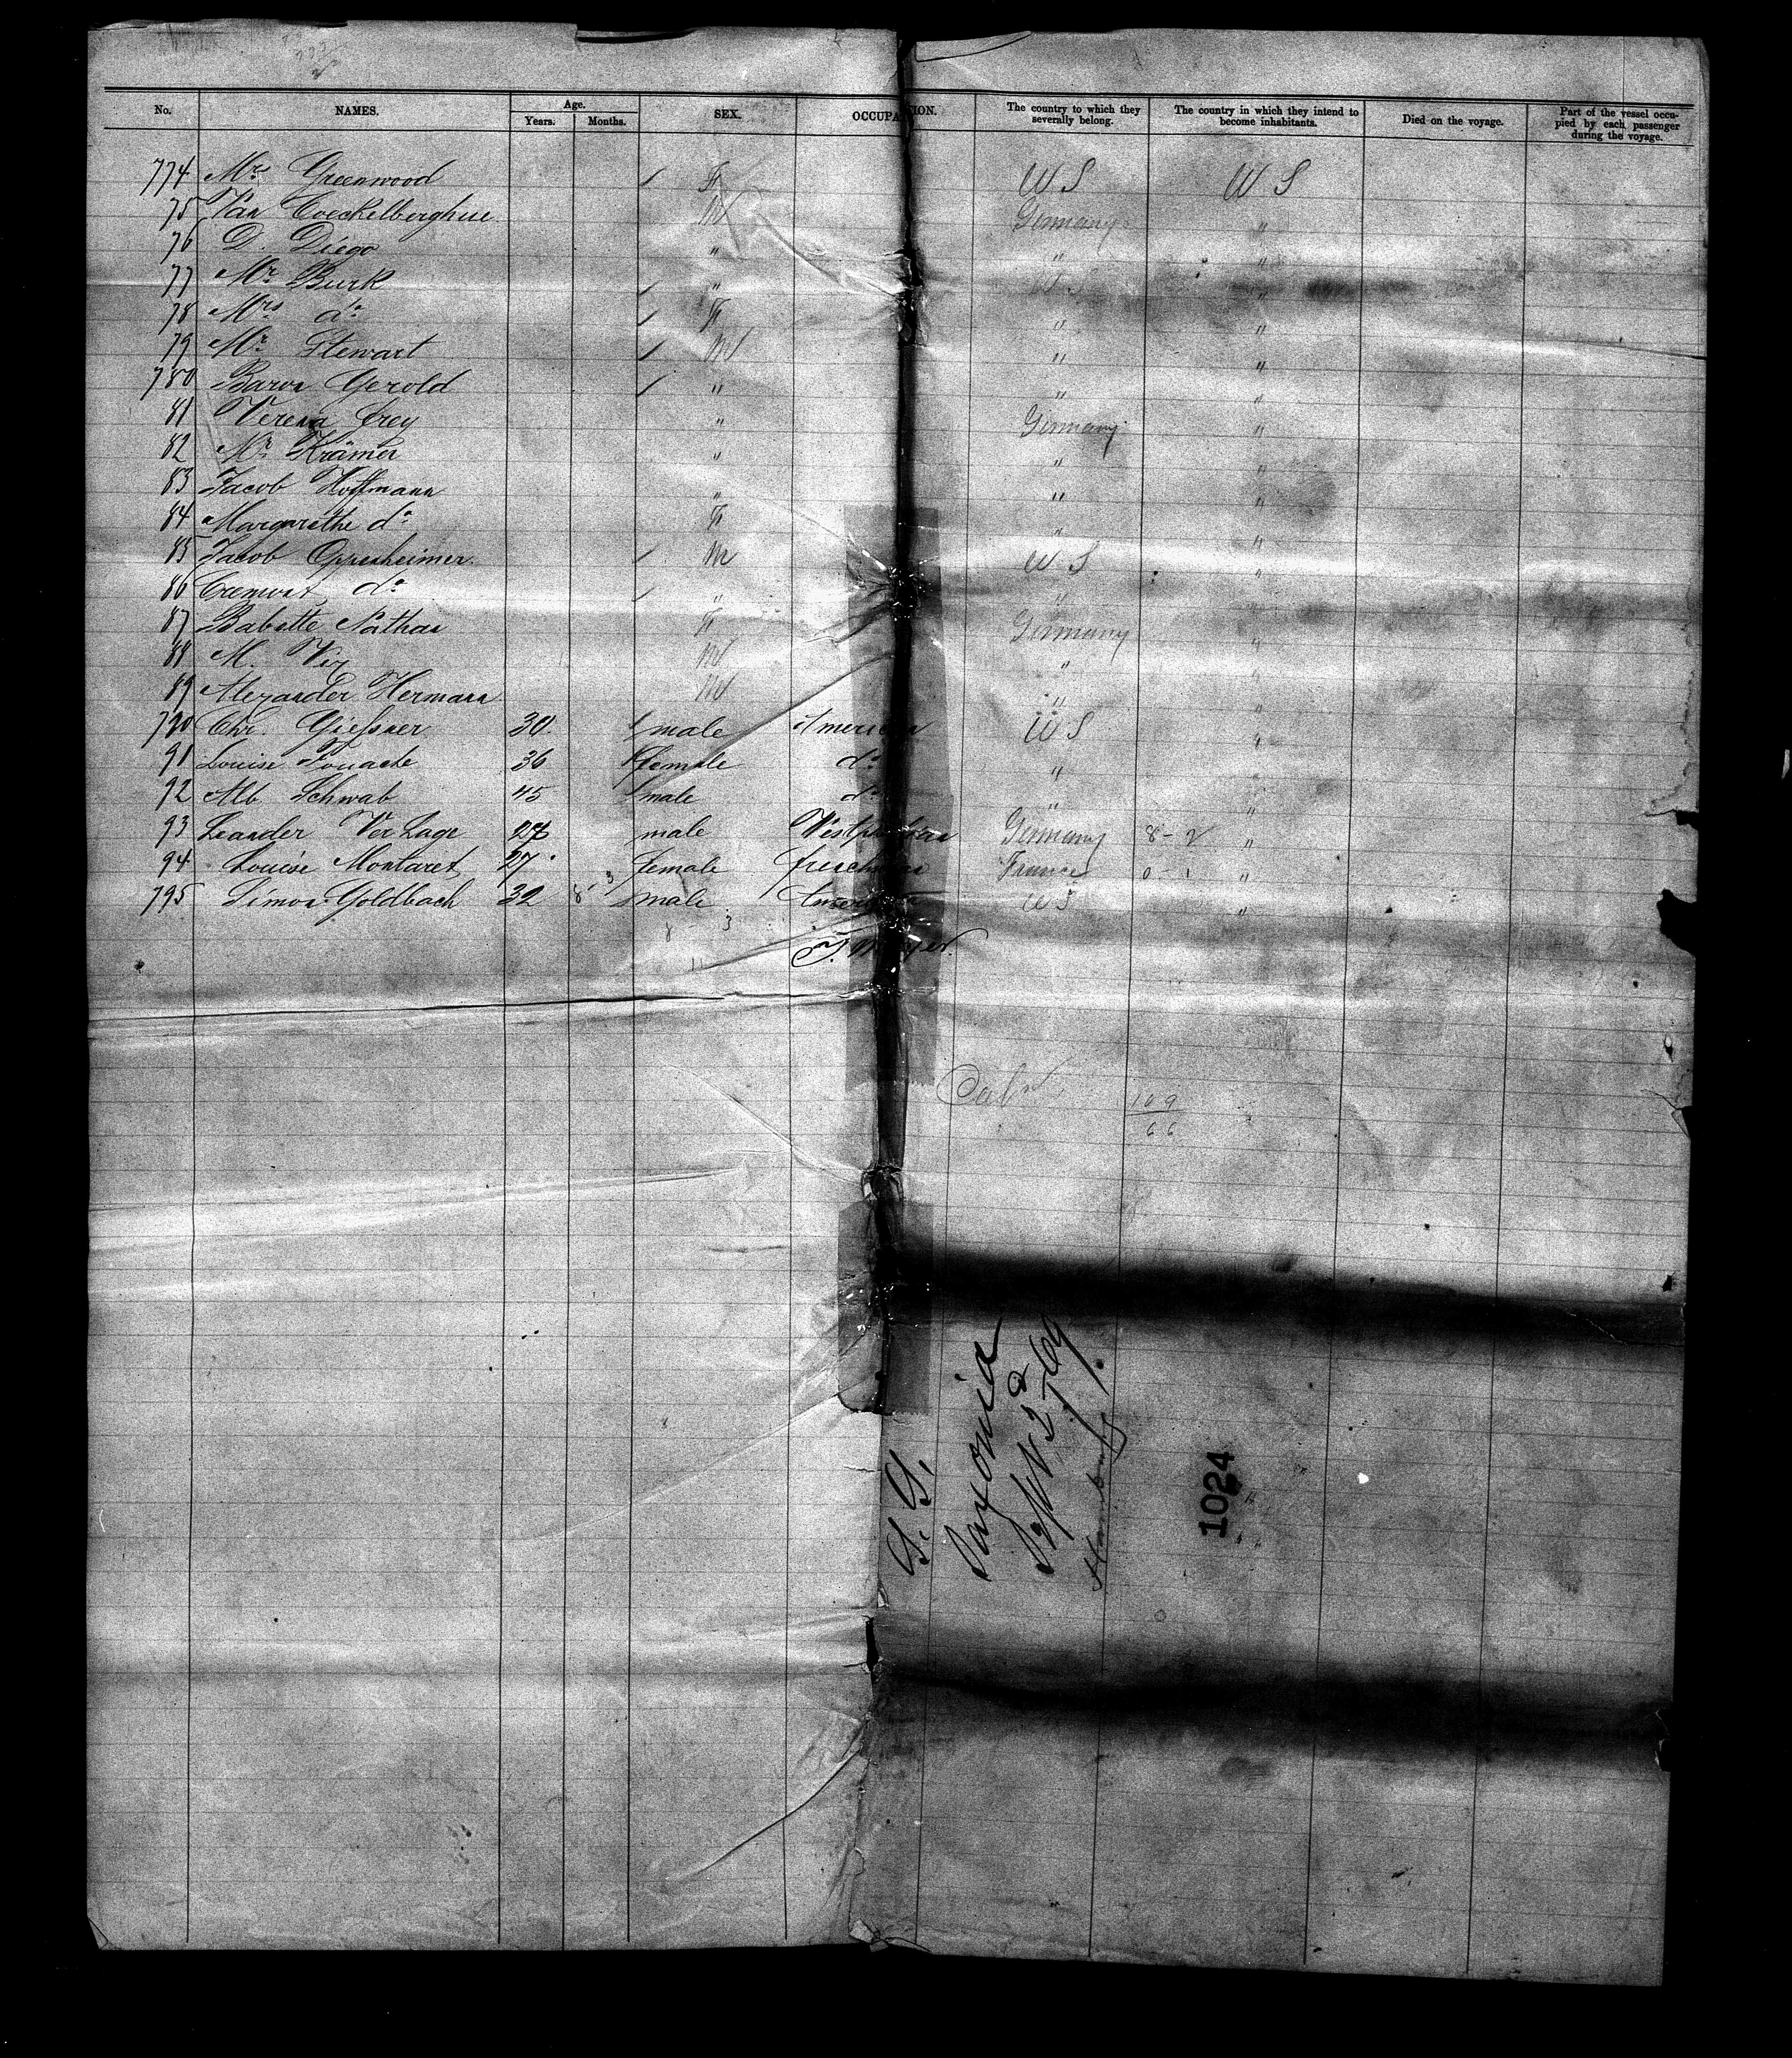 No. NAMES. Age. Years. Months. SEX. OCCUPATION. The country to which they severally belong. The country in which they intend to become inhabitants. Died on the voyage. Part of the vessel occupied by each passenger during the voyage.
774 Mrs Greenwood F US US
75 Van Coeckelberghue M Germany "
76 D. Diego " " "
77 Mr Burk " US "
78 Mrs do F " "
79 Mr Stewart M " "
780 Baron Gerold " " "
81 Verena Frey " Germany "
82 Mr Krämer " " "
83 Jacob Hoffmann " " "
84 Margarethe do F " "
85 Jacob Oppenheimer M US "
86 do " " "
87 Babette Nathan F Germany "
88 M. M " "
89 Alexander Hermann M " "
790 Chr. Giessner 30 male American US "
91 Louise 36 female do " "
92 Alb Schwab 45 male do " "
93 Leander Ver Lage male Germany 8-2 "
94 Louise Montaret 27 female France 0-1 "
795 Simon Goldbach 32 8-3 male American US "
8 3
11
T. Meyer.
109
66
S. S.
Saxonia
Sept 2d 69
Hamburg
1024